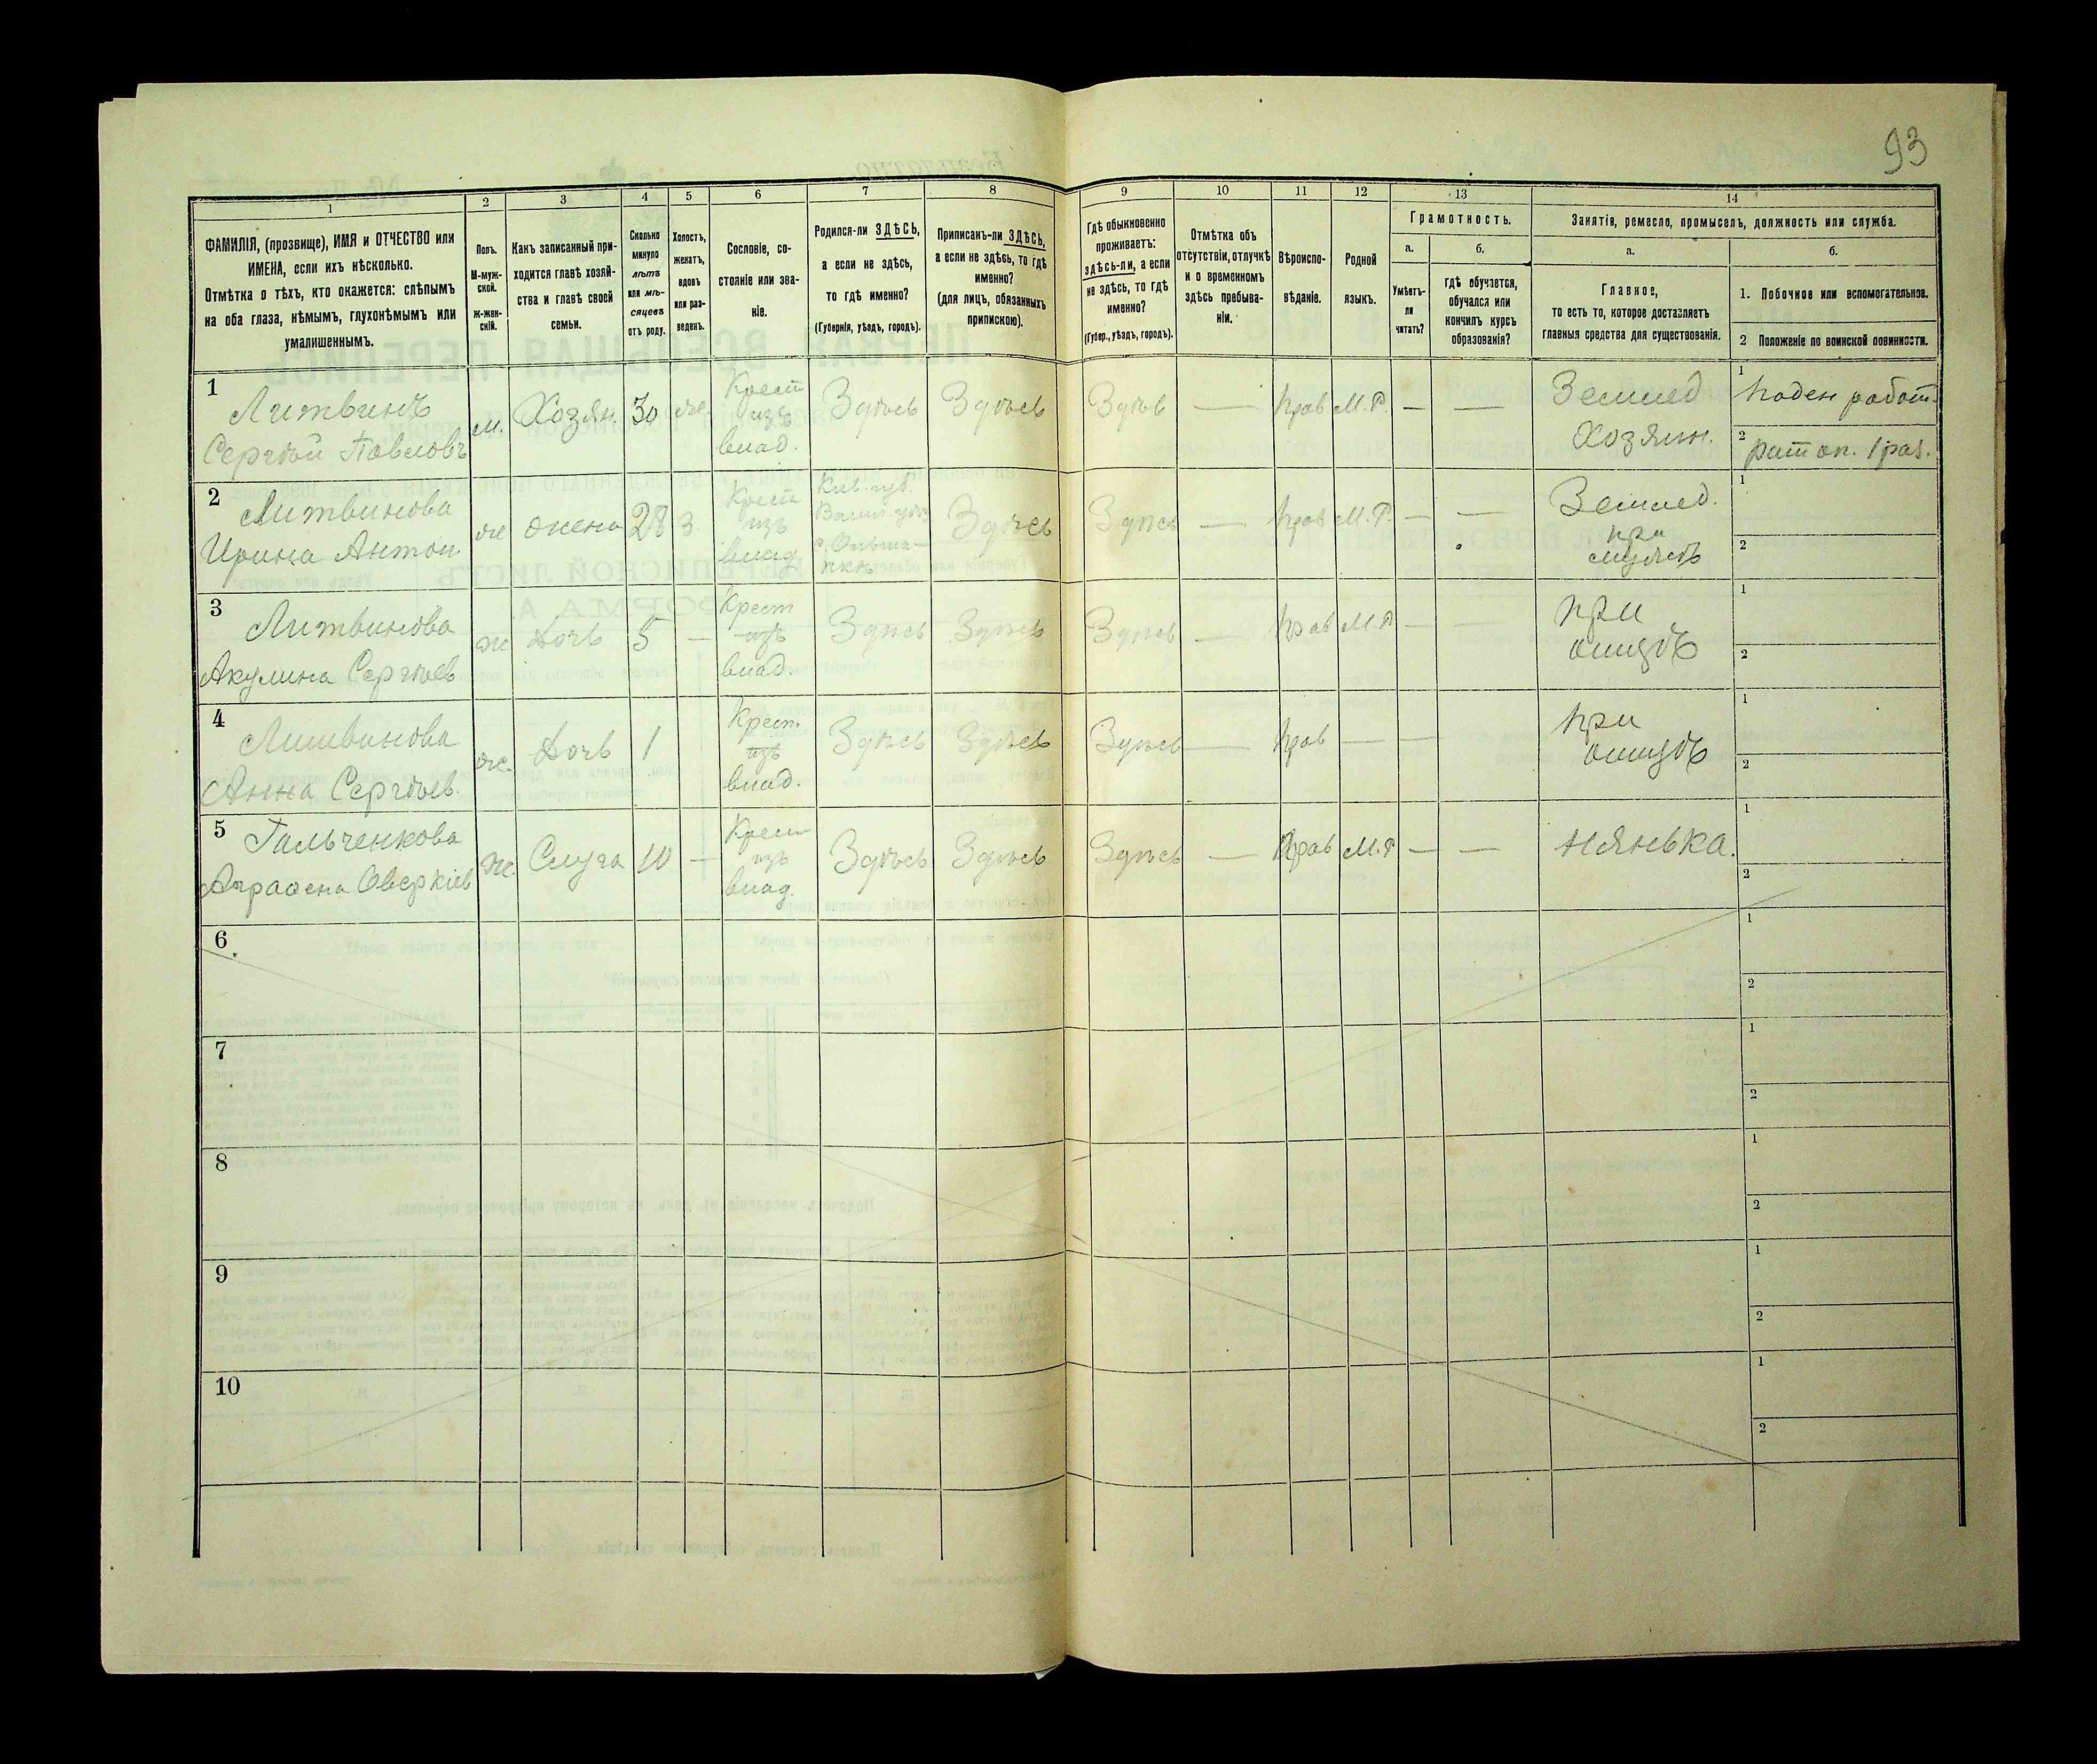 93
1 2 3 4 5 6 7 8 9 10 11 12 13 14
ФАМИЛІЯ, (прозвище), ИМЯ и ОТЧЕСТВО или
ИМЕНА, если ихъ нѣсколько.
Отмѣтка о тѣхъ, кто окажется: слѣпымъ
на оба глаза, нѣмымъ, глухонѣмымъ или
умалишеннымъ.
Полъ.
М-муж-
ской.
Ж-жен-
скій.
Какъ записанный при-
ходится главѣ хозяй-
ства и главѣ своей
семьи.
Сколько
минуло
лѣтъ
или мѣ-
сяцевъ
отъ роду.
Холостъ,
женатъ,
вдовъ
или раз-
веденъ.
Сословіе, со-
стояніе или зва-
ніе.
Родился-ли ЗДѢСЬ,
а если не здѣсь,
то гдѣ именно?
(Губернія, уѣздъ, городъ).
Приписанъ-ли ЗДѢСЬ,
а если не здѣсь, то гдѣ
именно?
(для лицъ, обязанныхъ
припискою).
Гдѣ обыкновенно
проживаетъ:
здѣсь-ли, а если
не здѣсь, то гдѣ
именно?
(Губер., уѣздъ, городъ).
Отмѣтка объ
отсутствіи, отлучкѣ
и о временномъ
здѣсь пребыва-
ніи.
Вѣроиспо-
вѣданіе.
Родной
языкъ.
Грамотность.
а.
Умѣетъ-
ли
читать?
б.
гдѣ обучается,
обучался или
кончилъ курсъ
образованія?
Занятія, ремесло, промыселъ, должность или служба.
а.
Главное,
то есть то, которое доставляетъ
главныя средства для существованія.
б.
1. Побочное или вспомогательное.
2 Положеніе по воинской повинности.
1
Литвинъ
Сергѣй Павловъ
м.
Хозян.
30
же
Крест
изъ
влад.
Здѣсь
Здѣсь
Здѣсь
—
Прав
М.Р.
—
—
Землед
Хозяин.
1
Поден работ.
2
рат оп. 1 раз.
2
Литвинова
Ирина Антон
же
жена
28
З
Крест
изъ
влад
Кіев. губ.
Здѣсь
Здѣсь
—
Прав
М.Р.
—
—
Землед.
при
мужѣ
1
2
3
Литвинова
Акулина Сергѣев
ж
Дочь
5
—
Крест
изъ
влад.
Здѣсь
Здѣсь
Здѣсь
—
Прав
М.Р
—
—
при
отцѣ
1
2
4
Литвинова
Анна Сергѣев.
же.
Дочь
1
Крест.
изъ
влад.
Здѣсь
Здѣсь
Здѣсь
—
Прав
—
—
при
отцѣ
1
2
5
Гальченкова
Аграфена Оверкіев
ж.
Слуга
10
—
Крест
изъ
влад.
Здѣсь
Здѣсь
Здѣсь
—
Прав
М.Р
—
—
нянька.
1
2
6
1
2
7
1
2
8
1
2
9
1
2
10
1
2